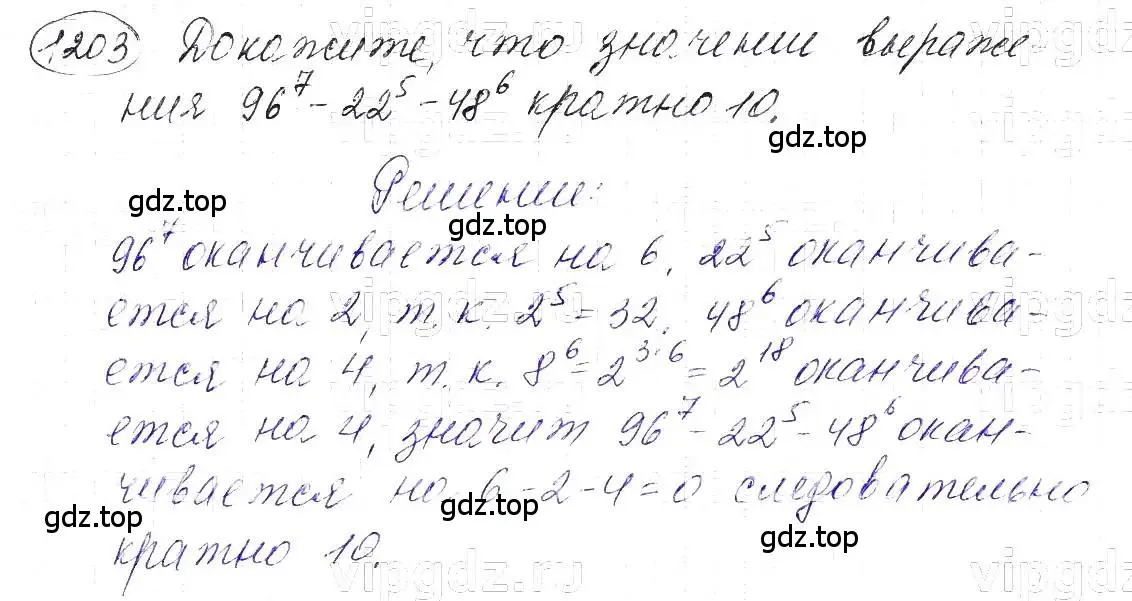 1203 Докажите, что значении выраже-
ния 96⁷ - 22⁵ - 48⁶ кратно 10.
gdz.top
Решение:
gdz.top
gdz.top
96⁷ оканчивается на 6, 22⁵ оканчива-
ется на 2, т.к. 2⁵ = 32, 48⁶ оканчива-
ется на 4, т.к. 8⁶ = 2³·⁶ = 2¹⁸ оканчива-
ется на 4, значит 96⁷ - 22⁵ - 48⁶ окан-
чивается на 6 - 2 - 4 = 0 следовательно
gdz.top
gdz.top
gdz.top
кратно 10.
vipgdz